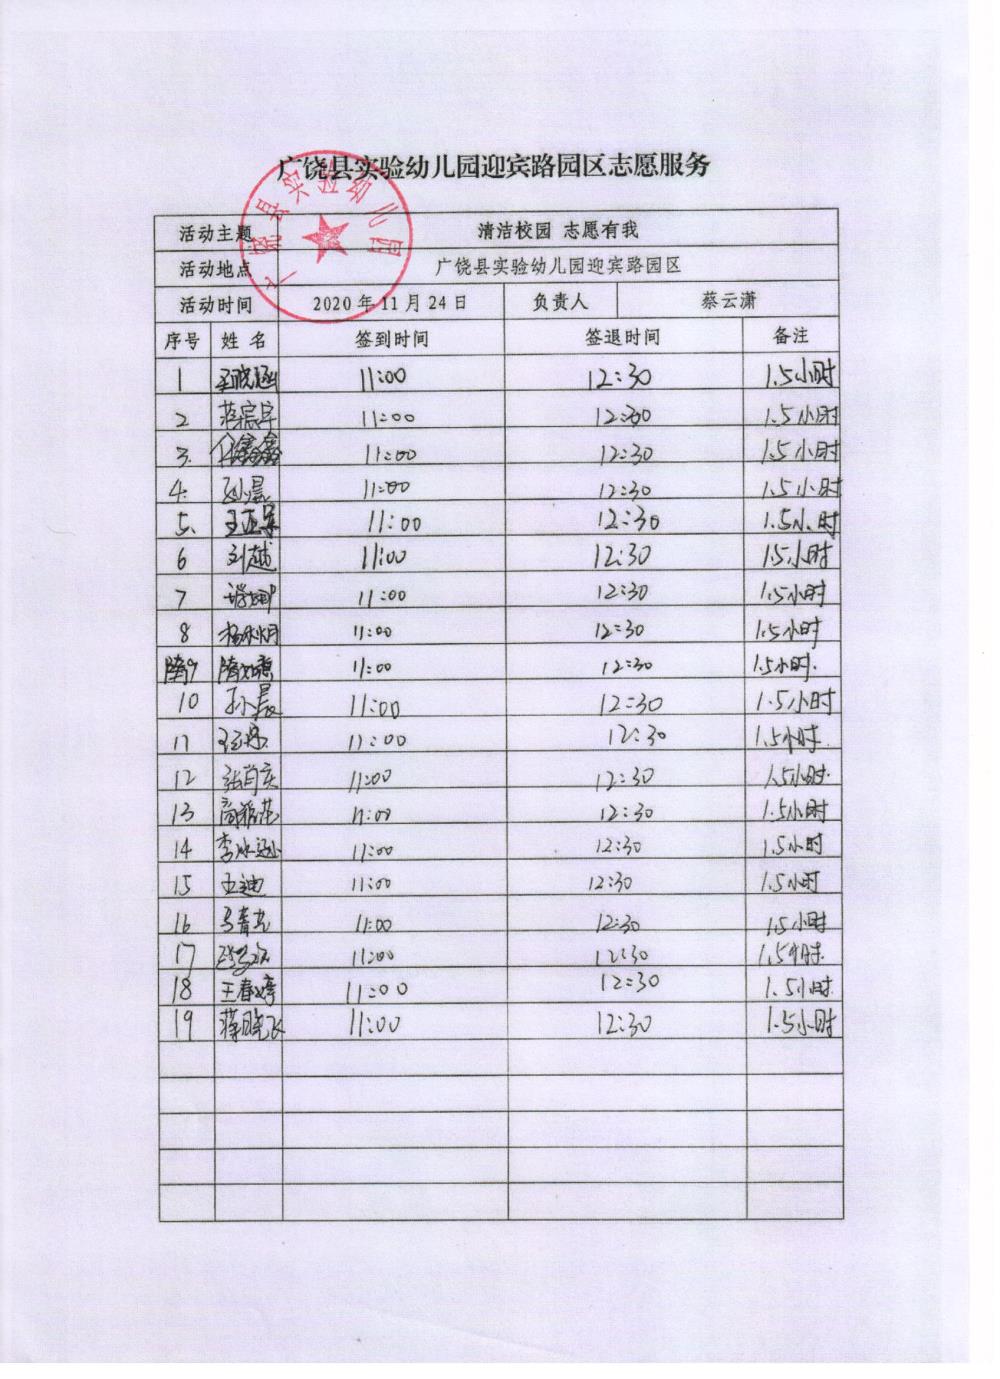 广饶县实验幼儿园迎宾路园区志愿服务
广饶县实验幼儿园
活动主题 清洁校园 志愿有我
活动地点 广饶县实验幼儿园迎宾路园区
活动时间 2020年11月24日 负责人 蔡云潇
序号 姓名 签到时间 签退时间 备注
1 11:00 12:30 1.5小时
2 蒋宸宇 11:00 12:30 1.5小时
3. 鑫鑫 11:00 12:30 1.5小时
4. 孙晨 11:00 12:30 1.5小时
5、 11:00 12:30 1.5小时
6 刘越 11:00 12:30 1.5小时
7 11:00 12:30 1.5小时
8 11:00 12:30 1.5小时
9 隋 11:00 12:30 1.5小时.
10 孙晨 11:00 12:30 1.5小时
11 11:00 12:30 1.5小时.
12 11:00 12:30 1.5小时.
13 11:00 12:30 1.5小时
14 李冰 11:00 12:30 1.5小时
15 王迪 11:00 12:30 1.5小时
16 马青 11:00 12:30 1.5小时
17 11:00 12:30 1.5小时.
18 王春婷 11:00 12:30 1.5小时.
19 蒋晓飞 11:00 12:30 1.5小时